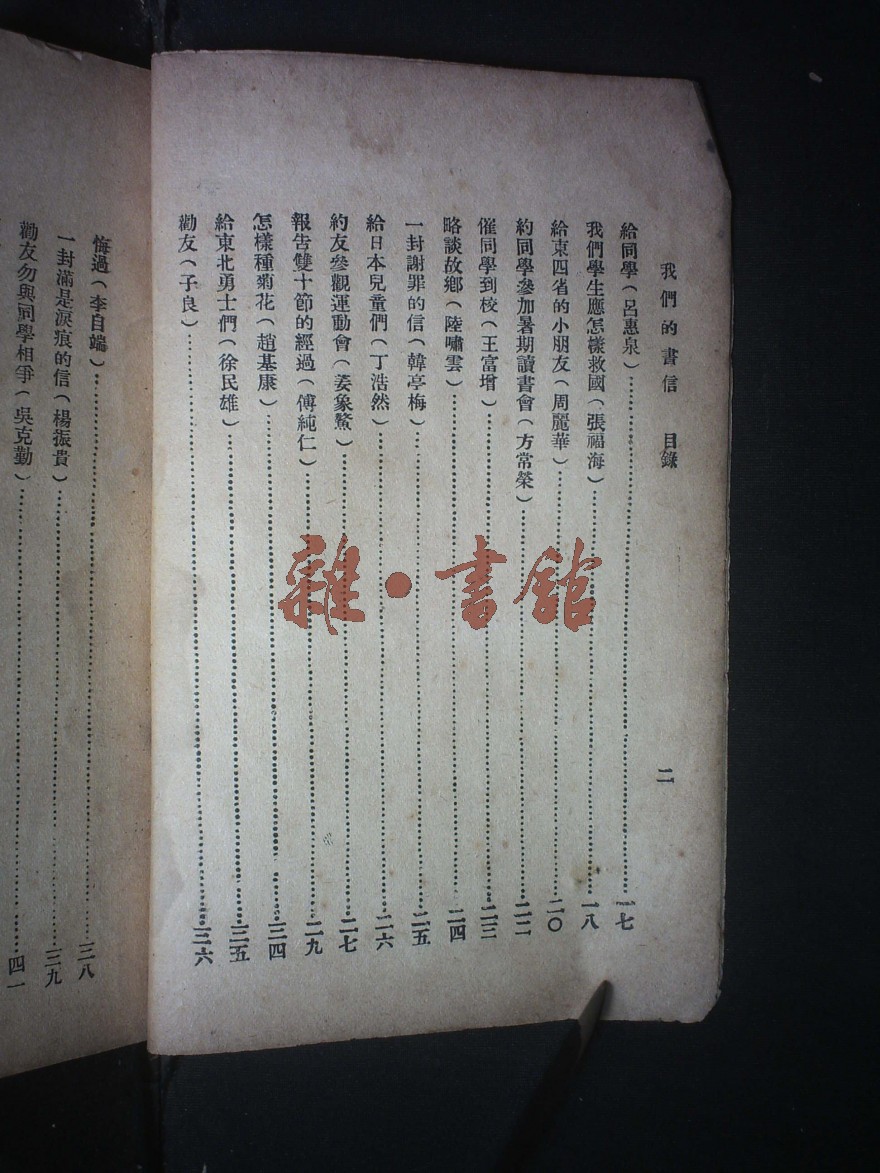 我們的書信　目錄　二
給同學（呂惠泉）……一七
我們學生應怎樣救國（張福海）……一八
給東四省的小朋友（周麗華）……二〇
約同學參加暑期讀書會（方常榮）……二二
催同學到校（王富增）……二三
略談故鄉（陸嘯雲）……二四
一封謝罪的信（韓亭梅）……二五
給日本兒童們（丁浩然）……二六
約友參觀運動會（姜象鰲）……二七
報告雙十節的經過（傅純仁）……二九
怎樣種菊花（趙基康）……三四
給東北勇士們（徐民雄）……三五
勸友（子良）……三六
悔過（李自端）……三八
一封滿是淚痕的信（楊振貴）……三九
勸友勿與同學相爭（吳克勤）……四一
雜·書館